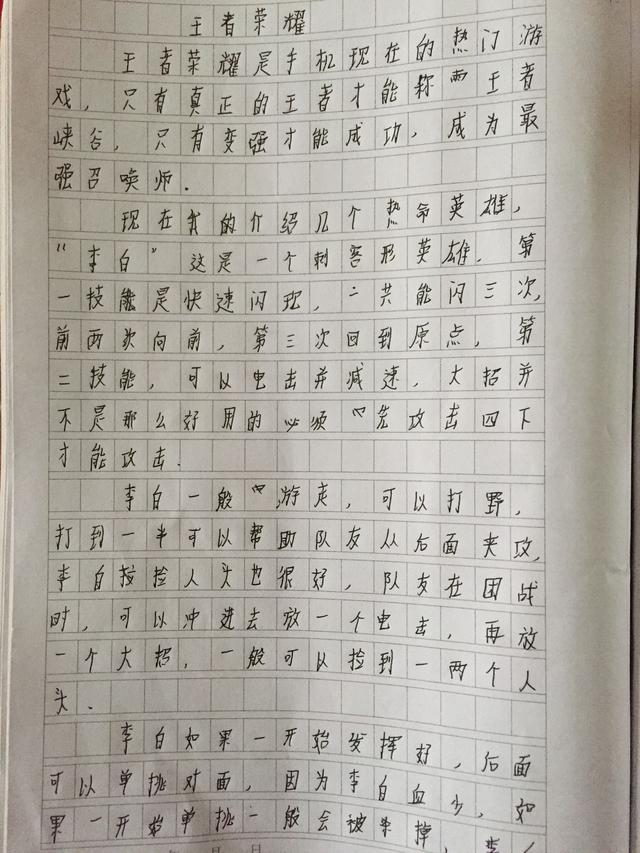 王者荣耀
王者荣耀是手机现在的热门游
戏，只有真正的王者才能称西王者
峡谷，只有变强才能成功，成为最
强召唤师．
现在我的介绍几个热命英雄，
“李白”这是一个刺客形英雄．第
一技能是快速闪现，二共能闪三次，
前两次向前，第三次回到原点，第
二技能，可以电击并减速．大招并
不是那么好用的必须“先攻击四下
才能攻击．
李白一般“游走，可以打野，
打到一半可以帮助队友从后面夹攻，
李白捡人头也很好，队友在团战
时，可以冲进去放一个电击，再放
一个大招，一般可以捡到一两个人
头．
李白如果一开始发挥好，后面
可以单挑对面，因为李白血少，如
果一开始单挑一般会被杀掉，李